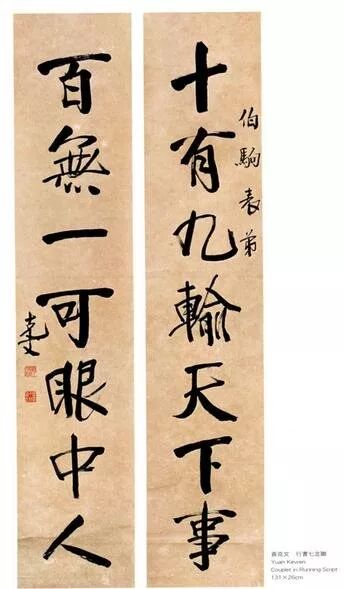 十有九輸天下事
伯駒表弟
百無一可眼中人
克文
袁克文 行書七言聯
Yuan Kewen
Couplet in Running Script
131×26cm